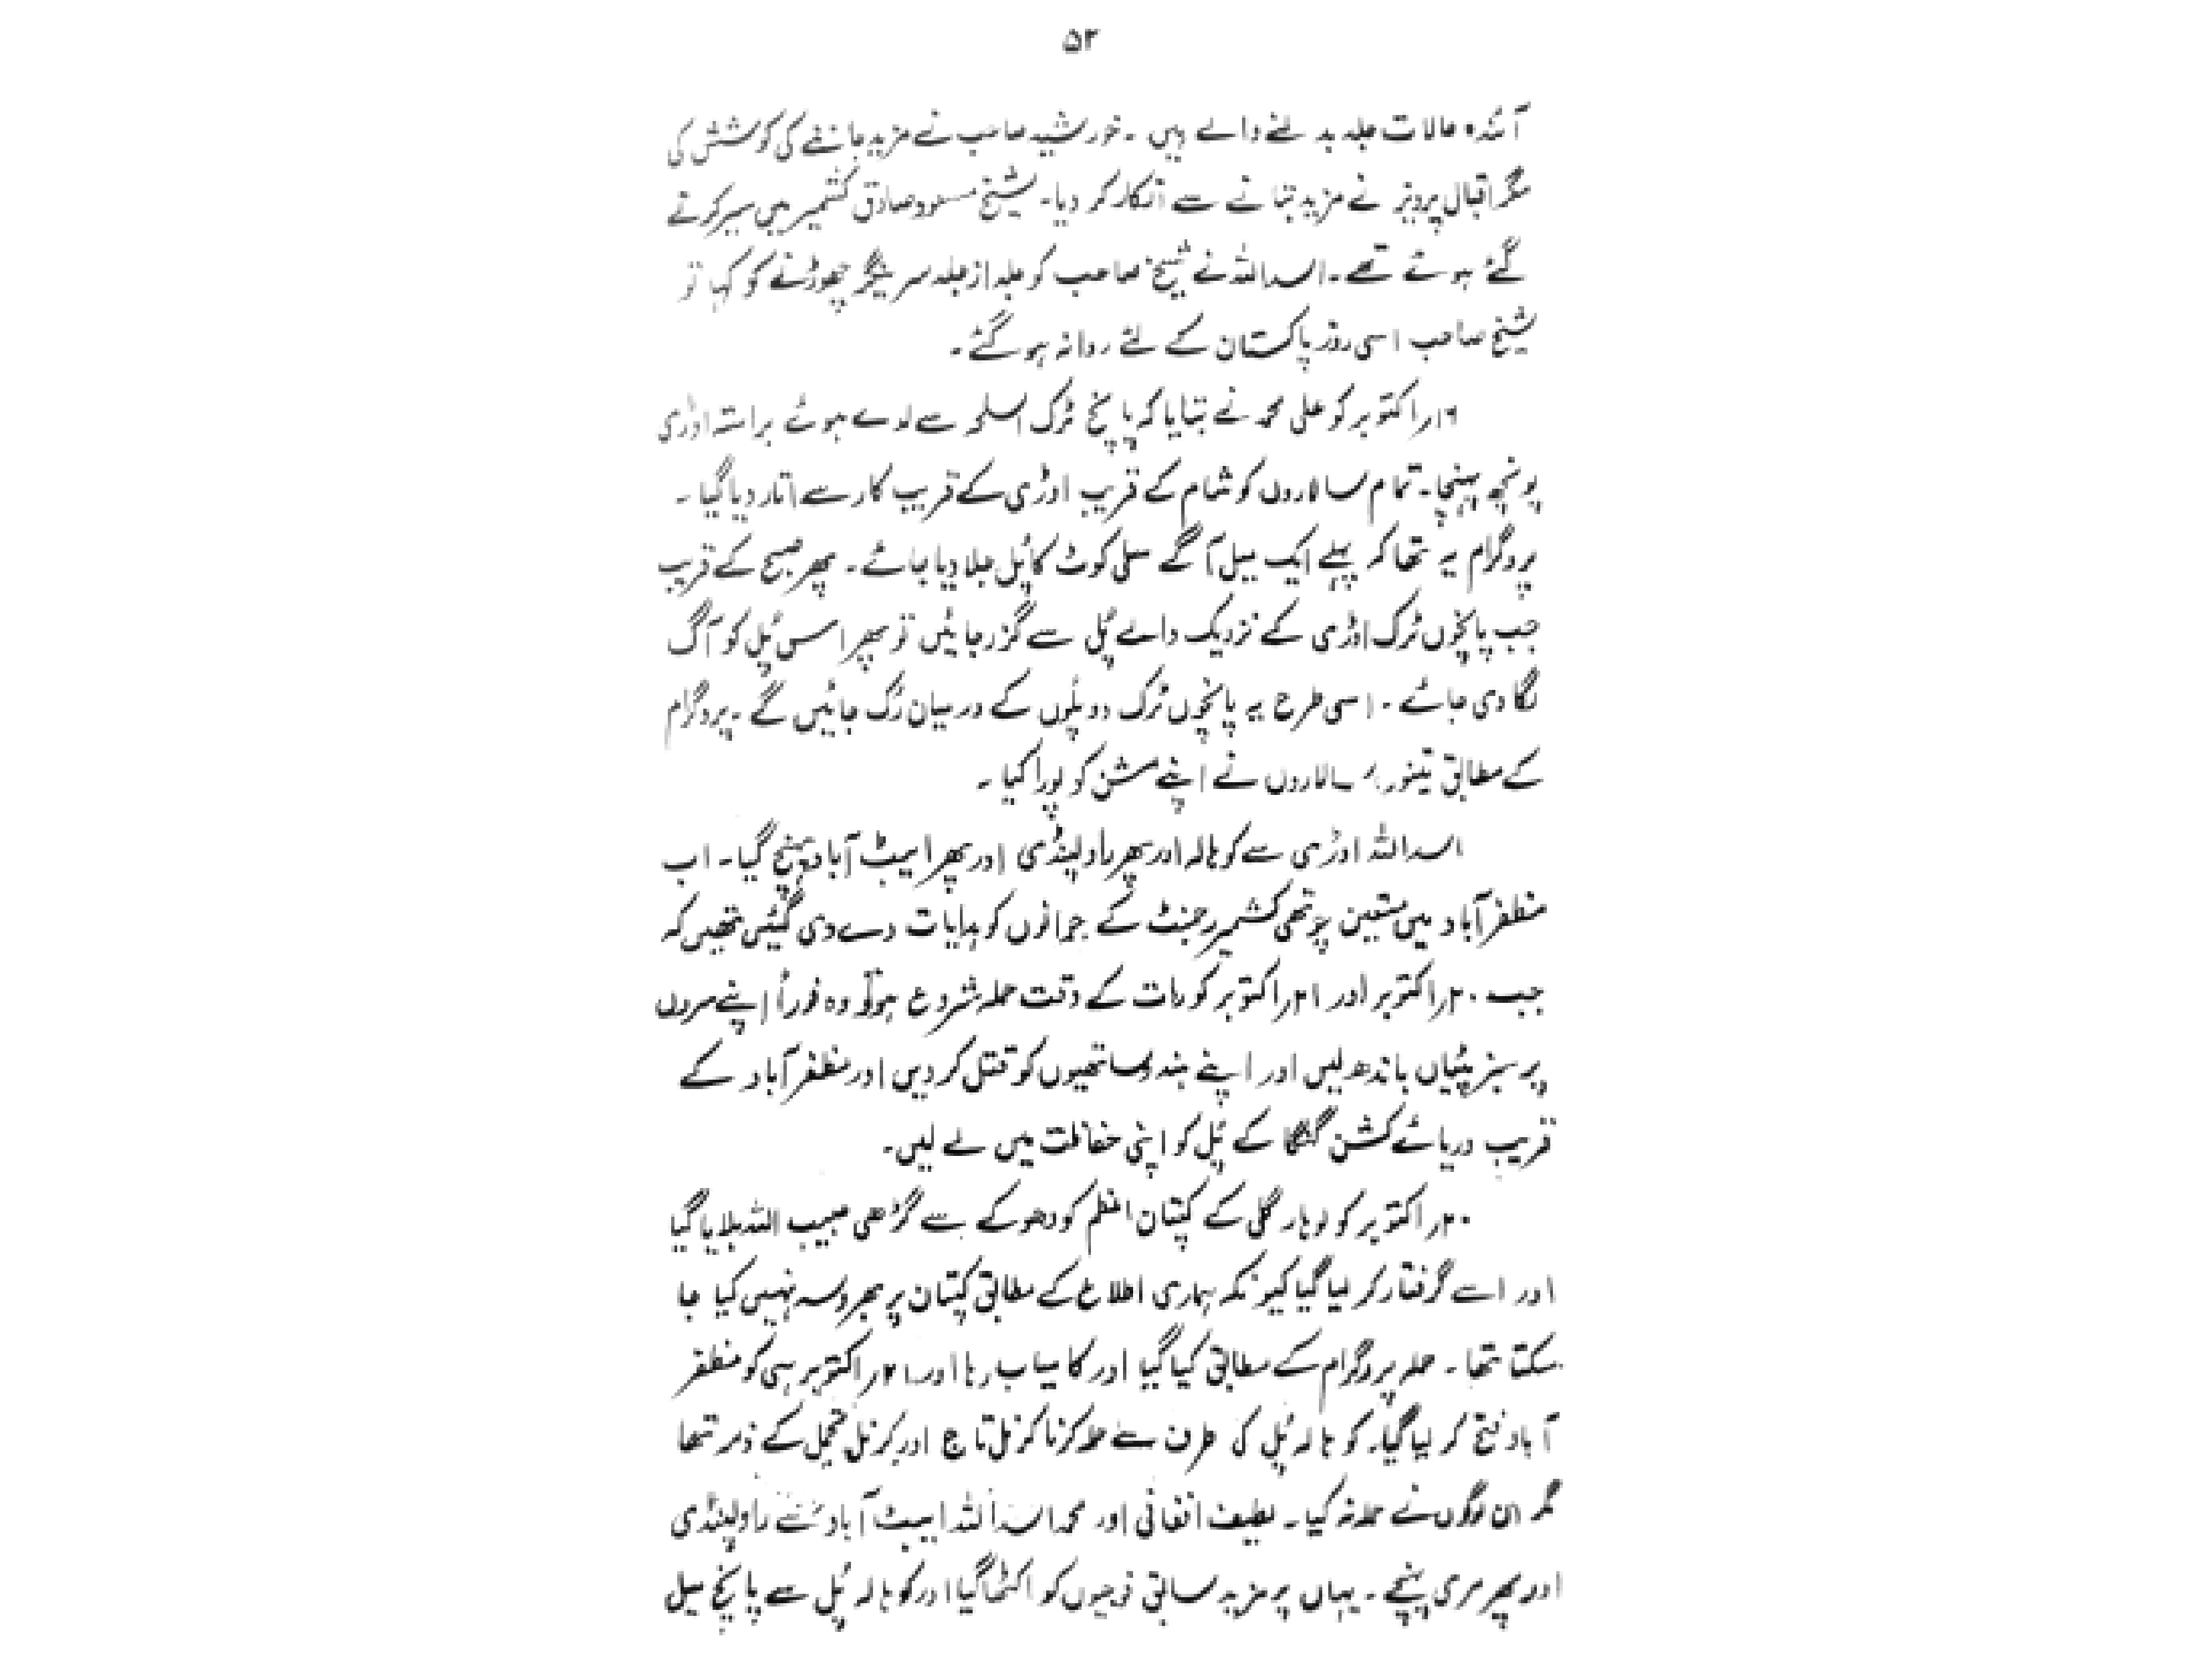 ۵۲
آئندہ حالات جلد بدلنے والے ہیں ۔ خورشید صاحب نے مزید جاننے کی کوشش کی
مگر اقبال پرویز نے مزید بتانے سے انکار کر دیا۔ شیخ مسعود صادق کشمیر میں سیر کرتے
گئے ہوئے تھے ۔ اسداللہ نے شیخ صاحب کو جلد از جلد سرینگر چھوڑنے کو کہا تو
شیخ صاحب اسی روز پاکستان کے لئے روانہ ہو گئے ۔
۱۶ر اکتوبر کو علی محمد نے بتایا کہ پانچ ٹرک اسلحہ سے لدے ہوئے براستہ اوڑی
پونچھ پہنچا۔ تمام سالاروں کو شام کے قریب اوڑی کے قریب کار سے اتار دیا گیا ۔
پروگرام یہ تھا کہ پہلے ایک میل آگے سلی کوٹ کا پُل جلا دیا جائے ۔ پھر صبح کے قریب
جب پانچوں ٹرک اوڑی کے نزدیک والے پُل سے گزر جائیں تو پھر اس پُل کو آگ
لگا دی جائے ۔ اسی طرح یہ پانچوں ٹرک دو پلوں کے درمیان رُک جائیں گے ۔ پروگرام
کے مطابق تینوں سالاروں نے اپنے مشن کو پورا کیا ۔
اسداللہ اوڑی سے کوہالہ اور پھر راولپنڈی اور پھر ایبٹ آباد پہنچ گیا ۔ اب
مظفر آباد میں متعین چوتھی کشمیر رجمنٹ کے جوانوں کو ہدایات دے دی گئیں تھیں کہ
جب ۲۰ر اکتوبر اور ۲۱ر اکتوبر کو رات کے وقت حملہ شروع ہو تو وہ فوراً اپنے سروں
پر سبز پٹیاں باندھ لیں اور اپنے ہندو ساتھیوں کو قتل کر دیں اور مظفر آباد کے
قریب دریائے کشن گنگا کے پُل کو اپنی حفاظت میں لے لیں۔
۲۰ر اکتوبر کو لوہار گلی کے کپتان اعظم کو دھوکے سے گڑھی حبیب اللہ بلایا گیا
اور اسے گرفتار کر لیا گیا کیونکہ ہماری اطلاع کے مطابق کپتان پر بھروسہ نہیں کیا جا
سکتا تھا ۔ حملہ پروگرام کے مطابق کیا گیا اور کامیاب رہا اور ۲۱ر اکتوبر ہی کو مظفر
آباد فتح کر لیا گیا۔ کوہالہ پُل کی طرف سے حملہ کرنا کرنل تاج اور کرنل تجمل کے ذمہ تھا
مگر ان لوگوں نے حملہ نہ کیا ۔ لطیف افغانی اور محمد اسداللہ ایبٹ آباد سے راولپنڈی
اور پھر مری پہنچے ۔ یہاں پر مزید سابق فوجیوں کو اکٹھا گیا اور کوہالہ پُل سے پانچ میل